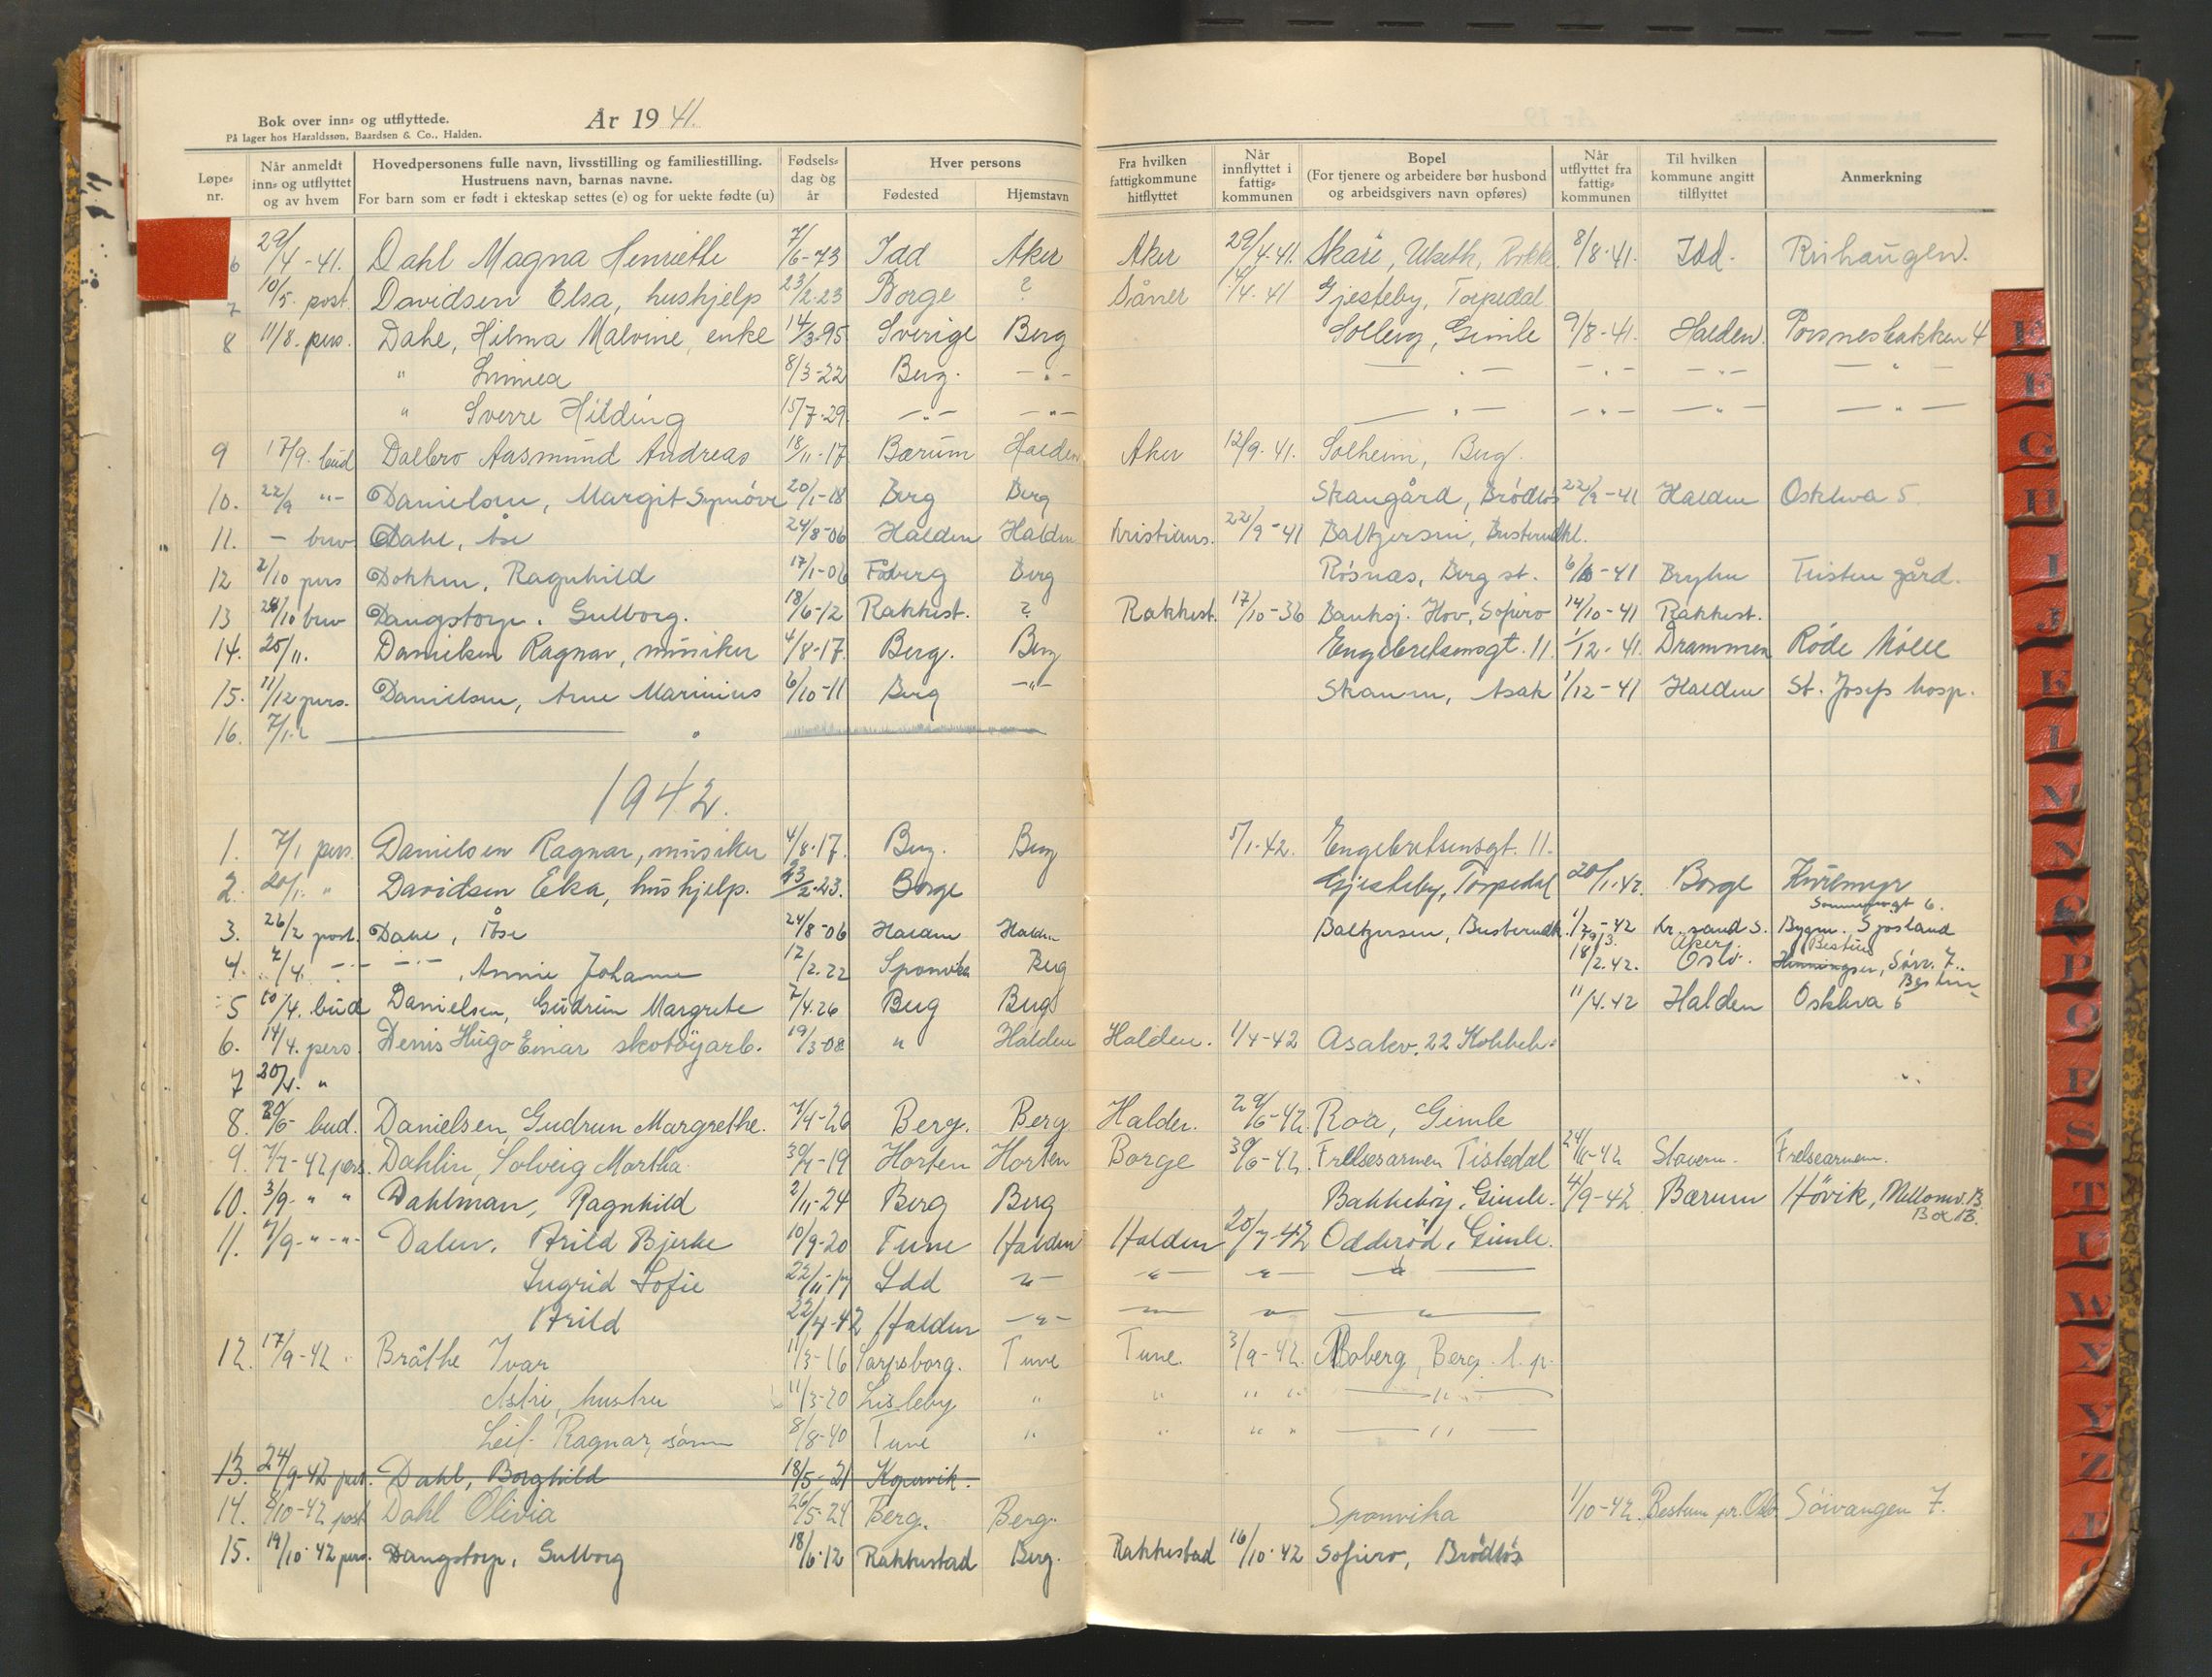 Bok over inn- og utflyttede.
På lager hos Haraldssøn, Baardsen & Co., Halden.
År 1941.
Løpe-nr. Når anmeldt inn- og utflyttet og av hvem Hovedpersonens fulle navn, livsstilling og familiestilling. Hustruens navn, barnas navne. For barn som er født i ekteskap settes (e) og for uekte fødte (u) Fødsels-dag og år Hver persons Fødested Hjemstavn Fra hvilken fattigkommune hitflyttet Når innflyttet i fattig-kommunen Bopel (For tjenere og arbeidere bør husbond og arbeidsgivers navn opføres) Når utflyttet fra fattig-kommunen Til hvilken kommune angitt tilflyttet Anmerkning
6 29/4-41. Dahl Magna Henriette 7/6-73 Idd Aker Aker 29/4.41. Skare, Rokke 8/8-41. Idd.
7 10/5. post. Davidsen Elsa, hushjelp 23/2.23 Borge ? Såner /4.41 Gjesteby, Torpedal
8 11/8. pers. Dahl, Hilma Malvine, enke 14/3-95 Sverige Berg Solberg, Gimle 9/8-41. Halden. Porsnesbakken 4
" Linnea 8/3-22 Berg. -"- -"- -"- -"- -"-
" Sverre Hilding 15/7-29. -"- -"- -"- -"- -"- -"-
9 17/9. bud Dalbro Aasmund Andreas 18/11-17 Bærum Halden Aker 12/9.41. Solheim, Berg.
10. 22/9 "- Danielsen, Margit Synøve 20/1-18 Berg Berg Skaugård, Brödlös 22/9-41 Halden Oskleva 5
11. - brev Dahl, Åse 24/8-06 Halden Halden Kristians. 22/9-41 Baltzersen,
12 2/10 pers Dokken, Ragnhild 17/1-06 Fåberg Berg Rösnæs, Berg st. 6/10-41 Tristen gård.
13 28/10 brev Dangstorp, Gulborg. 18/6-12 Rakkest. ? Rakkest. 17/10-36 Banksj. Hov, Sofiero 14/10-41 Rakkest.
14. 25/11. Danielsen Ragnar, musiker 4/8-17. Berg. Berg Engebretsensgt. 11. 1/12-41. Drammen Röde Mölle
15. 11/12 pers. Danielsen, Arne Marinius 6/10-11 Berg -"- Skaum, Asak 1/12-41 Halden St. Josefs hosp.
16. 7/1.
1942.
1. 7/1 pers. Danielsen Ragnar, musiker 4/8.17. Berg. Berg 5/1.42. Engebretsensgt. 11.
2. 20/1. " Davidsen Elsa, hushjelp. 23/2.23. Borge Gjesteby, Torpedal 20/1.42. Borge
3. 26/2 post. Dahl, Åse 24/8-06 Halden Halden Baltzersen, -42 Kr.sand S. Bygm. Sjösland
4. 7/4. -"- -"-, Annie Johanne 17/2.22 Sponvika Berg 18/2.42. Aker. Oslo. Bestun
5 10/4. bud Danielsen, Gudrun Margrete 7/4.26 Berg Berg 11/4.42 Halden Oskleva 6
6. 14/4. pers. Denis Hugo Einar skotöyarb. 19/3-08 " Halden Halden. 1/4-42 Asakv. 22
7 20/4. "
8. 29/6- bud. Danielsen, Gudrun Margrethe. 7/4-26 Berg. Berg Halden. 29/6-42. Roa, Gimle
9. 7/7-42 pers. Dahlin, Solveig Martha. 30/4-19 Horten Horten Borge 30/6-42. Frelsesarmen Tistedal 24/11-42 Stavern. Frelsearmen.
10. 3/9- " " Dahlman, Ragnhild 2/11-24 Berg Berg Bakkehöy, Gimle. 4/9-42 Bærum Hövik, Mellomv. 13. Box 13.
11. 7/9-"-"- Dalen, Arild Bjerke 10/9-20 Tune Halden Halden 20/7-42 Odderöd, Gimle.
Ingrid Sofie 22/11-17 Idd -"- -"- -"- -"-
Arild 22/4-42 Halden -"- -"- -"- -"-
12. 17/9-42 Bråthe Ivar 11/3-16 Sarpsborg. Tune Tune. 3/9-42. Moberg, Berg l. p.
Astri, hustru 11/3-20 Lisleby " " " " -"-
Leif Ragnar, sönn 8/8-40 Tune " " " " -"-
13. 24/9-42 pers. Dahl, Borghild 18/5-21 Kopervik.
14. 8/10-42 post Dahl Olivia 26/5-24 Berg. Berg. Sponvika 1/10-42. Bestum pr. Oslo Söivangen 7.
15. 19/10.42 pers. Dangstorp, Gulborg 18/6-12 Rakkestad Berg. Rakkestad 16/10.42 Sofiero, Brödlös
F
G
H
I
J
K
P
R
S
T
U
W
X
Y
Z